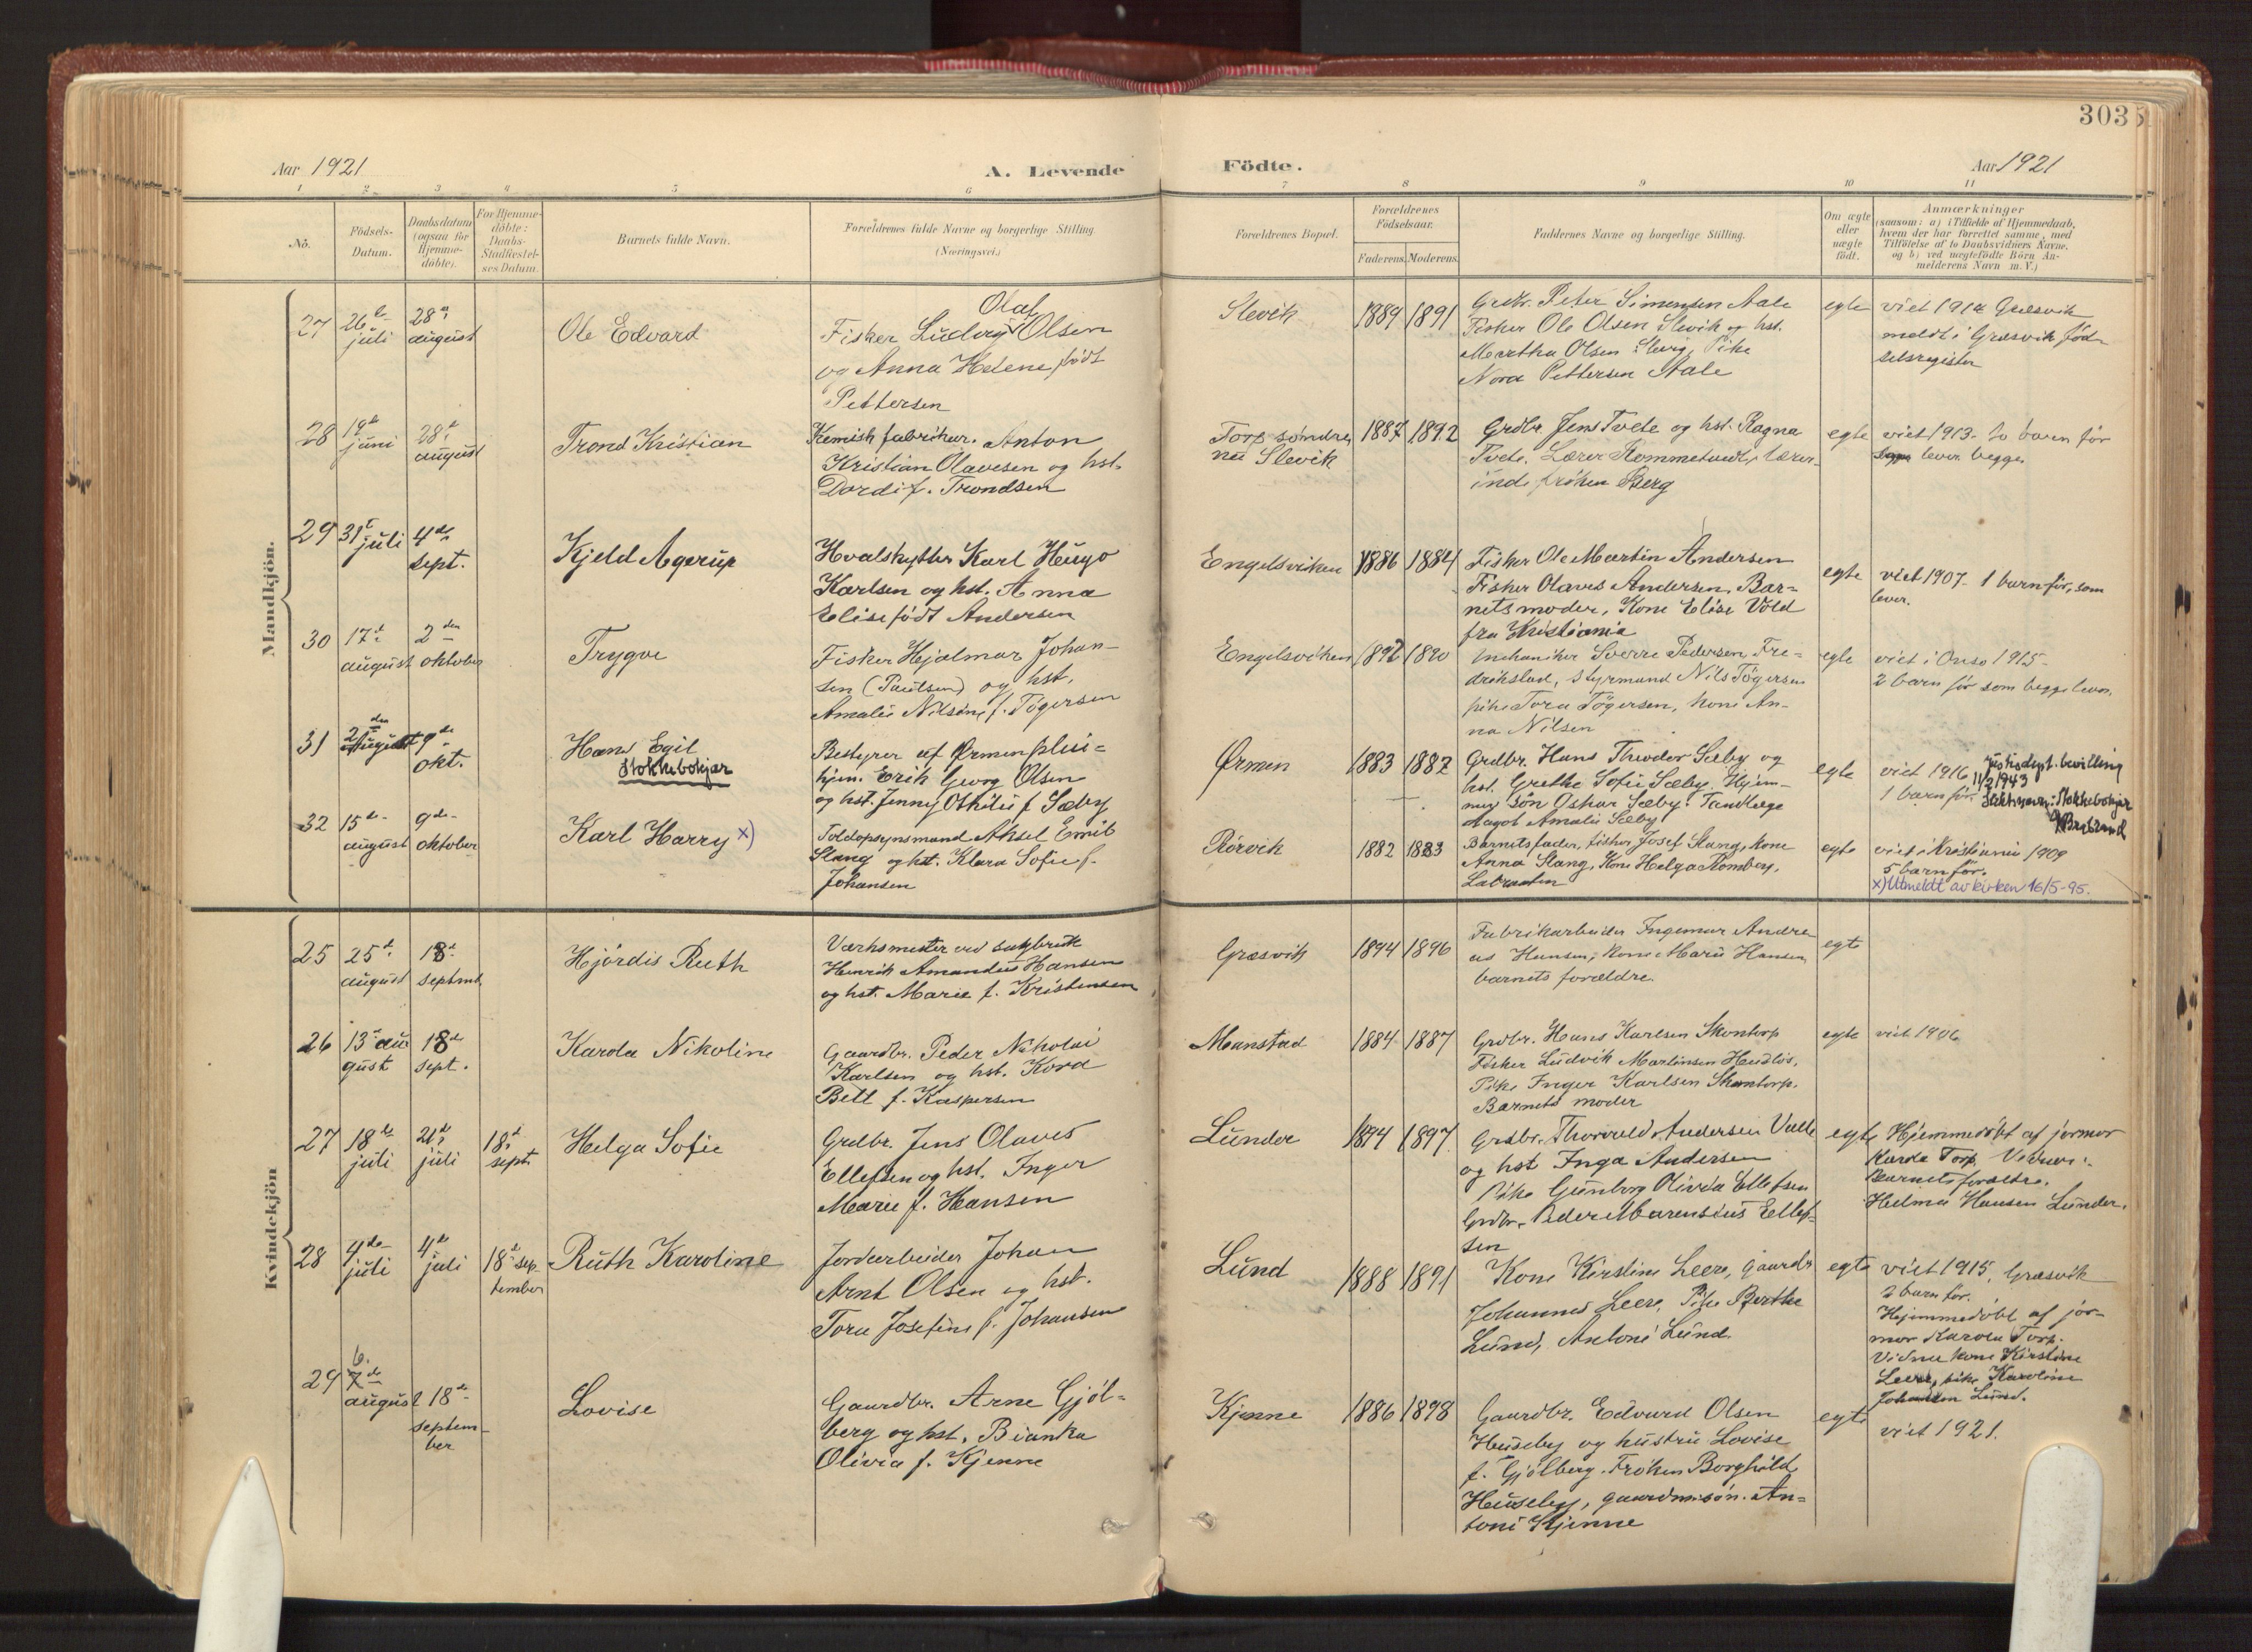 303
Aar 1921
A. Levende
Födte.
Aar 1921
1 2 3 4 5 6 7 8 9 10 11
No.
Födsels-
Datum.
Daabsdatum
(ogsaa for
Hjemme-
döbte).
For Hjemme-
döbte:
Daabs-
Stadfæstel-
ses Datum.
Barnets fulde Navn.
Forældrenes fulde Navne og borgerlige Stilling
(Næringsvei.)
Forældrenes Bopæl.
Forældrenes
Födselsaar.
Faderens. Moderens.
Faddernes Navne og borgerlige Stilling.
Om ægte
eller
uægte
födt.
Anmærkninger
(saasom: a) i Tilfælde af Hjemmedaab,
hvem der har forrettet samme, med
Tilföielse af to Daabsvidners Navne.
og b) ved uægtefödte Börn An-
melderens Navn m. V.)
Mandkjön.
27
26de
juli
28de
august
Ole Edvard
Olaf
Fisker Ludvig Olsen
og Anna Helene født
Pettersen
Slevik
1889
1891
Grdbr. Peter Simensen Aale
Fisker Ole Olsen Slevik og hst.
Martha Olsen Slevig, Pike
Nora Pettersen Aale
egte
viet 1912 Græsvik
meldt i Græsvik fød-
selsregister
28
19de
juni
28de
august
Trond Kristian
Kemisk fabrikar. Anton
Kristian Olavesen og hst.
Dordi f. Trondsen
Torp søndre,
nu Slevik
1887
1892
Grdbr. Jens Tvete og hst. Ragna
Tvete. Lærer Kommetvedt, lærer-
inde frøken Berg
egte
viet 1913. to barn før
lever begge
29
31te
juli
4de
sept.
Kjeld Agerup
Hvalskytter Karl Hugo
Karlsen og hst. Anna
Elise født Andersen
Engelsviken
1886
1884
Fisker Ole Martin Andersen
Fisker Olaves Andersen, Bar-
nets moder, Kone Elise Vold
fra Kristiania
egte
viet 1907. 1 barn før, som
lever.
30
17de
august
2den
oktober
Trygve
Fisker Hjalmar Johan-
sen (Paulsen) og hst.
Amalie Nilsine f. Tøgersen
Engelsviken
1892
1890
Mekaniker Sverre Pedersen Fre-
drikstad, styrmand Nils Tøgersen
pike Tora Tøgersen, kone An-
na Nilsen
egte
viet i Onsø 1915-
2 barn før som begge lever.
31
2den
August
9de
okt.
Hans Egil
Stokkebokjær
Bestyrer af Ørmen pleie-
hjem. Erik Georg Olsen
og hst. Jenny Othilie f. Sæby
Ørmen
1883
1882
Grdbr. Hans Theodor Sæby og
hst. Grethe Sofie Sæby. Hjem-
mev. søn Oskar Sæby. Tandlæge
Magot Amalie Sæby
egte
viet 1916
1 barn før.
Justisdept. bevilling
11/2 1943
Slektsnavn: Stokkebokjær
32
15de
august
9de
oktober
Karl Harry x)
Toldopsynsmand Aksel Emil
Slang og hst. Klara Sofie f.
Johansen
Rörvik
1882
1883
Barnets fader, fisker Josef Slang, kone
Anna Slang, Kone Helga Romberg,
egte
viet i Kristiania 1909
5 barn før.
x) Utmeldt av kirken 16/5-95.
Kvindekjön
25
25de
august
18de
septmb.
Hjördis Ruth
Værksmester ved sagbruk
Henrik Amandus Hansen
og hst. Marie f. Kristensen
Græsvik
1894
1896
Fabrikarbeider Ingemar Andre-
as Hansen, kone Marie Hansen
barnets forældre.
egte
26
13de au-
gust
18de
sept.
Karda Nikoline
Gaardbr. Peder Nikolai
Karlsen og hst. Kora
Bell f. Kaspersen
Manstad
1884
1887
Grdbr. Hans Karlsen Skontorp
Fisker Ludvik Martinsen Hudløs,
Pike Inger Karlsen Skontorp.
Barnets moder
egte
viet 1906
27
18de
juli
21de
juli
18de
sept.
Helga Sofie
Grdbr. Jens Olaves
Ellefsen og hst. Inger
Marie f. Hansen
Lunder
1894
1897
Grdbr. Thorvald Andersen Valle
og hst Inga Andersen
Pike Gunborg Olivia Ellefsen
Grdbr. Peder Marensius Ellef-
sen
egte
Hjemmedøbt af jormor
Karda Torp. Vidner:
Barnets forældre.
Helma Hansen Lunder.
28
4de
juli
4de
juli
18de sep-
tember
Ruth Karoline
Jordarbeider Johan
Arnt Olsen og hst.
Tora Josefine f. Johansen
Lund
1888
1891
Kone Kirstine Leere, gaardbr
Johannes Leere, Pike Berthe
Lund, Antone Lund.
egte
viet 1915, Græsvik
2 barn før.
Hejmmedøbt af jor-
mor Karda Torp.
Vidner kone Kirstine
Leere, pike Karoline
Johansen Lund.
29
6.
7de
august
18de
septem-
ber
Lovise
Gaardbr. Arne Gjøl-
berg og hst. Bianka
Olivia f. Kjenne
Kjenne
1886
1898
Gaardbr. Edvard Olsen
Huseby og hustru Lovise
f. Gjølberg. Frøken Borghild
Huseby, gaardm.søn. An-
toni Kjenne
egte
viet 1921.